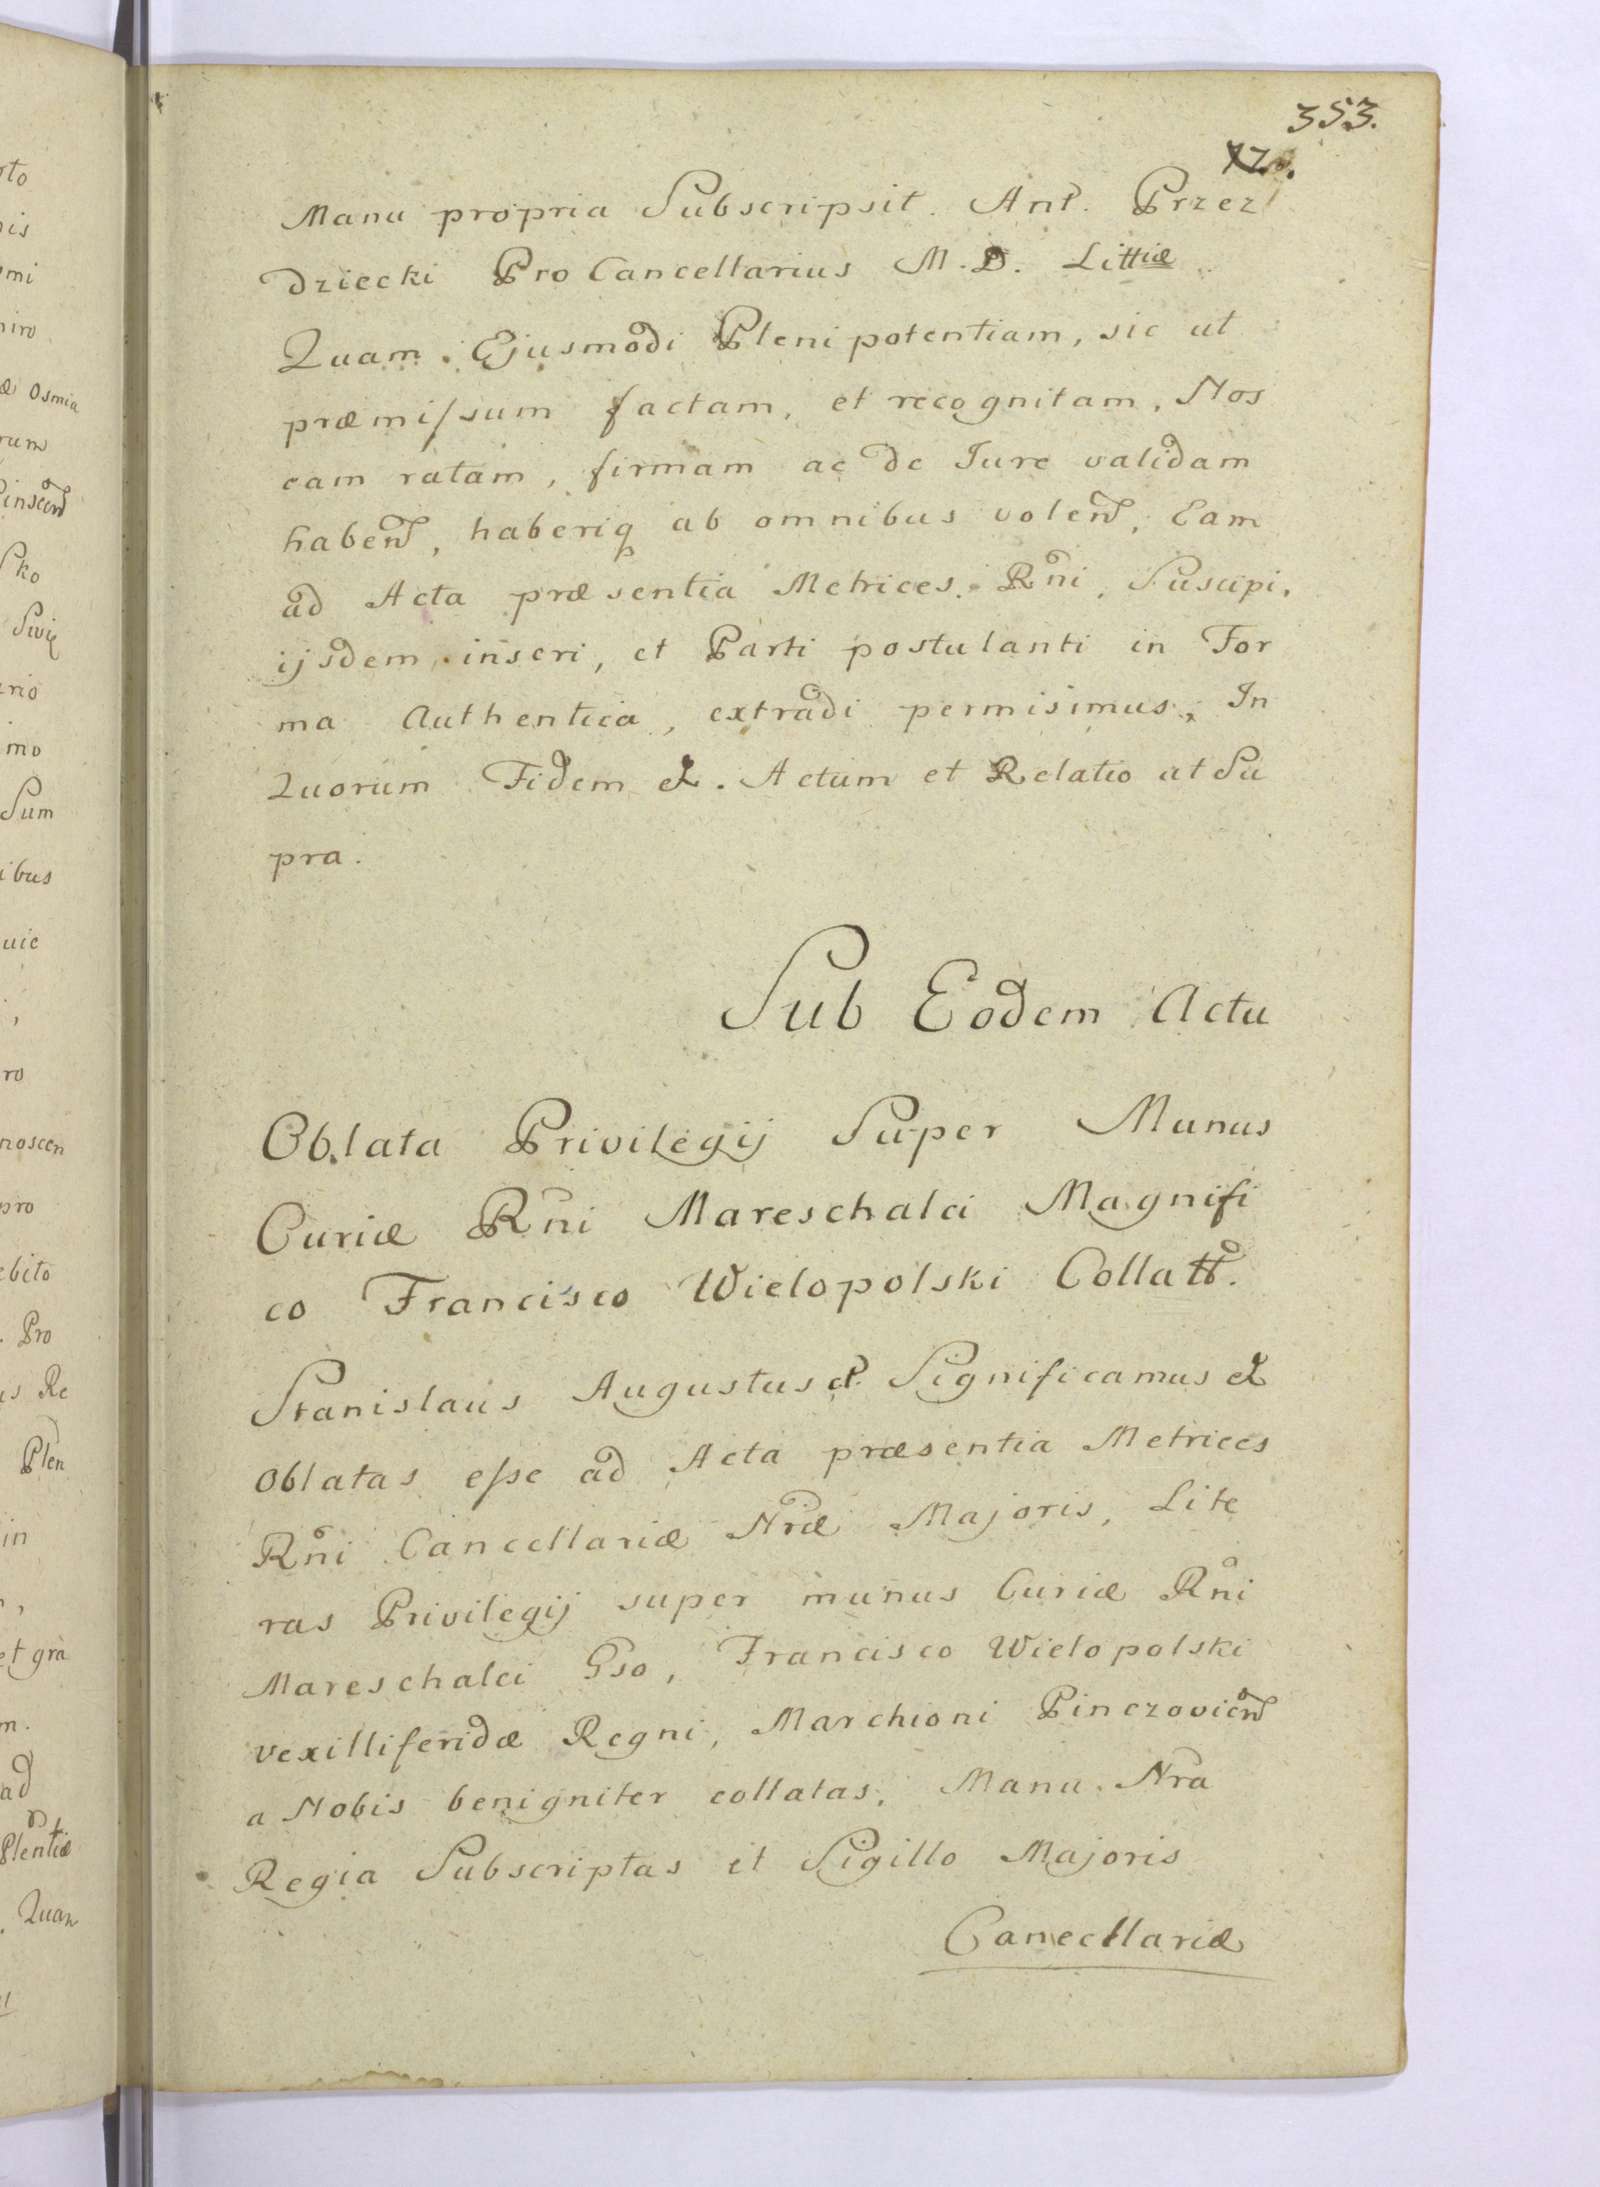 353.
Manu propria Subscripsit. Ant. Przez
dziecki ProCancellarius M. D. Littiæ
Quam Ejusmodi Plenipotentiam, sic ut
præmissum factam, et recognitam, Nos
eam ratam, firmam ac de Jure validam
haben, haberiq ab omnibus volen, Eam
ad Acta præsentia Metrices Rni, Suscipi,
ijsdem inseri, et Parti postulanti in For
ma Authentica, extradi permisimus, In
Quorum Fidem &. Actum et Relatio ut Su
pra.
Sub Eodem Actu
Oblata Privilegij Super Munus
Curiæ Rni Mareschalci Magnifi
co Francisco Wielopolski Collatt.
Stanislaus Augustus &. Significamus &
Oblatas esse ad Acta præsentia Metrices
Rni Cancellariæ Nræ Majoris, Lite
ras Privilegij super munus Curiæ Rni
Mareschalci Gso, Francisco Wielopolski
vexilliferidæ Regni, Marchioni Pinczovien
a Nobis benigniter collatas, Manu Nra
Regia Subscriptas et Sigillo Majoris
Cancellariæ
to
is
mi
niro
æ Osmia
rum
Pinscen
sko
rio
imo
Sum
ibus
uic
ro
noscen
pro
ebito
. Pro
us Re
Plen
in
et gra
m.
ad
Plentiæ
. Quam